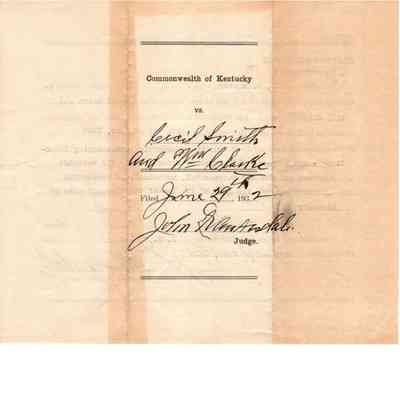 Commonwealth of Kentucky
vs.
Cecil Smith
and Wm Clarke
Filed June 29th, 1932
John
Judge.